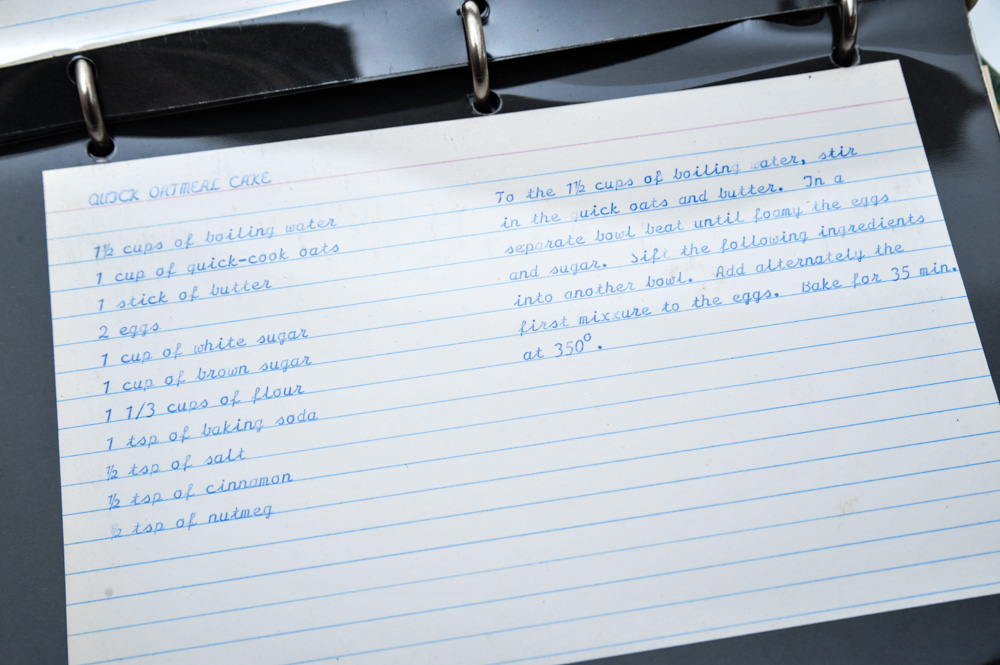 QUICK OATMEAL CAKE
1½ cups of boiling water
1 cup of quick-cook oats
1 stick of butter
2 eggs
1 cup of white sugar
1 cup of brown sugar
1 1/3 cups of flour
1 tsp of baking soda
½ tsp of salt
½ tsp of cinnamon
½ tsp of nutmeg
To the 1½ cups of boiling water, stir
in the quick oats and butter. In a
separate bowl beat until foamy the eggs
and sugar. Sift the following ingredients
into another bowl. Add alternately the
first mixture to the eggs. Bake for 35 min.
at 350°.